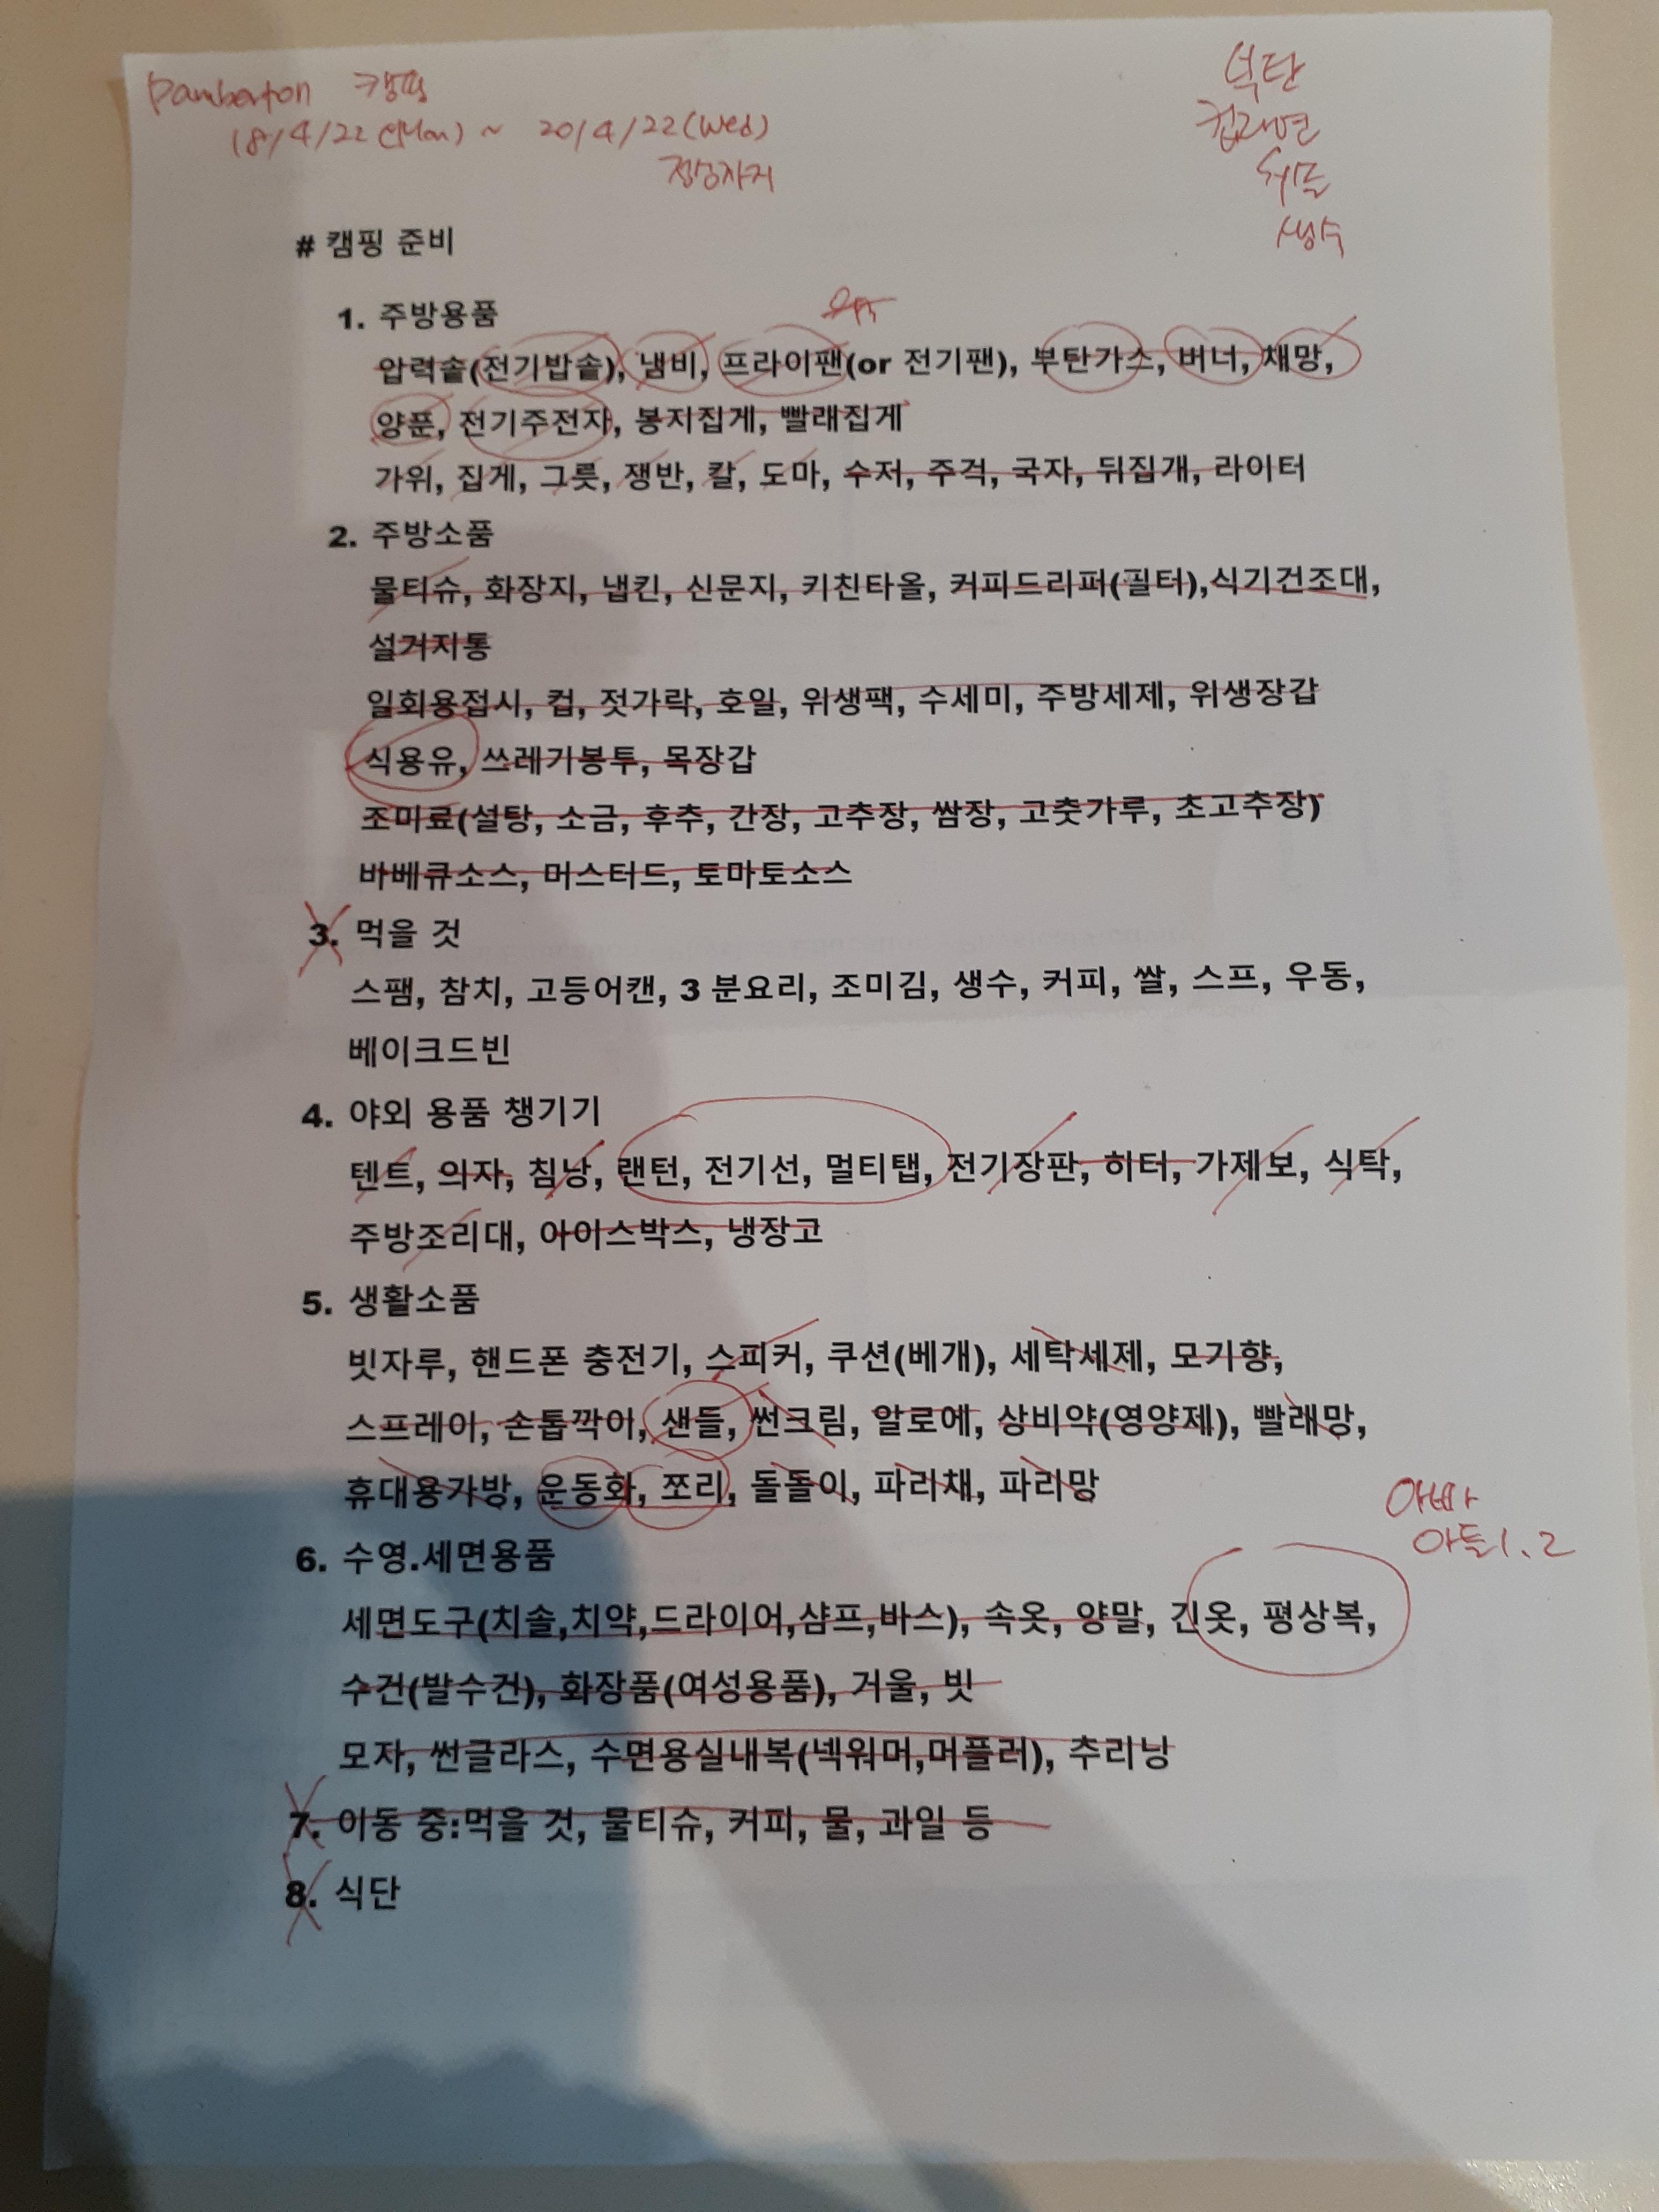 Pamberton 캠핑
18/4/22 (Mon) ~ 20/4/22 (Wed)
컵라면
생수
# 캠핑 준비
1. 주방용품
압력솥(전기밥솥), 냄비, 프라이팬(or 전기팬), 부탄가스, 버너, 채망,
양푼, 전기주전자, 봉지집게, 빨래집게
가위, 집게, 그릇, 쟁반, 칼, 도마, 수저, 주걱, 국자, 뒤집개, 라이터
2. 주방소품
물티슈, 화장지, 냅킨, 신문지, 키친타올, 커피드리퍼(필터),식기건조대,
설거지통
일회용접시, 컵, 젓가락, 호일, 위생팩, 수세미, 주방세제, 위생장갑
식용유, 쓰레기봉투, 목장갑
조미료(설탕, 소금, 후추, 간장, 고추장, 쌈장, 고춧가루, 초고추장)
바베큐소스, 머스터드, 토마토소스
3. 먹을 것
스팸, 참치, 고등어캔, 3 분요리, 조미김, 생수, 커피, 쌀, 스프, 우동,
베이크드빈
4. 야외 용품 챙기기
텐트, 의자, 침낭, 랜턴, 전기선, 멀티탭, 전기장판, 히터, 가제보, 식탁,
주방조리대, 아이스박스, 냉장고
5. 생활소품
빗자루, 핸드폰 충전기, 스피커, 쿠션(베개), 세탁세제, 모기향,
스프레이, 손톱깍이, 샌들, 썬크림, 알로에, 상비약(영양제), 빨래망,
휴대용가방, 운동화, 쪼리, 돌돌이, 파리채, 파리망
아빠
아들1.2
6. 수영.세면용품
세면도구(치솔,치약,드라이어,샴프,바스), 속옷, 양말, 긴옷, 평상복,
수건(발수건), 화장품(여성용품), 거울, 빗
모자, 썬글라스, 수면용실내복(넥워머,머플러), 추리닝
7. 이동 중:먹을 것, 물티슈, 커피, 물, 과일 등
8. 식단